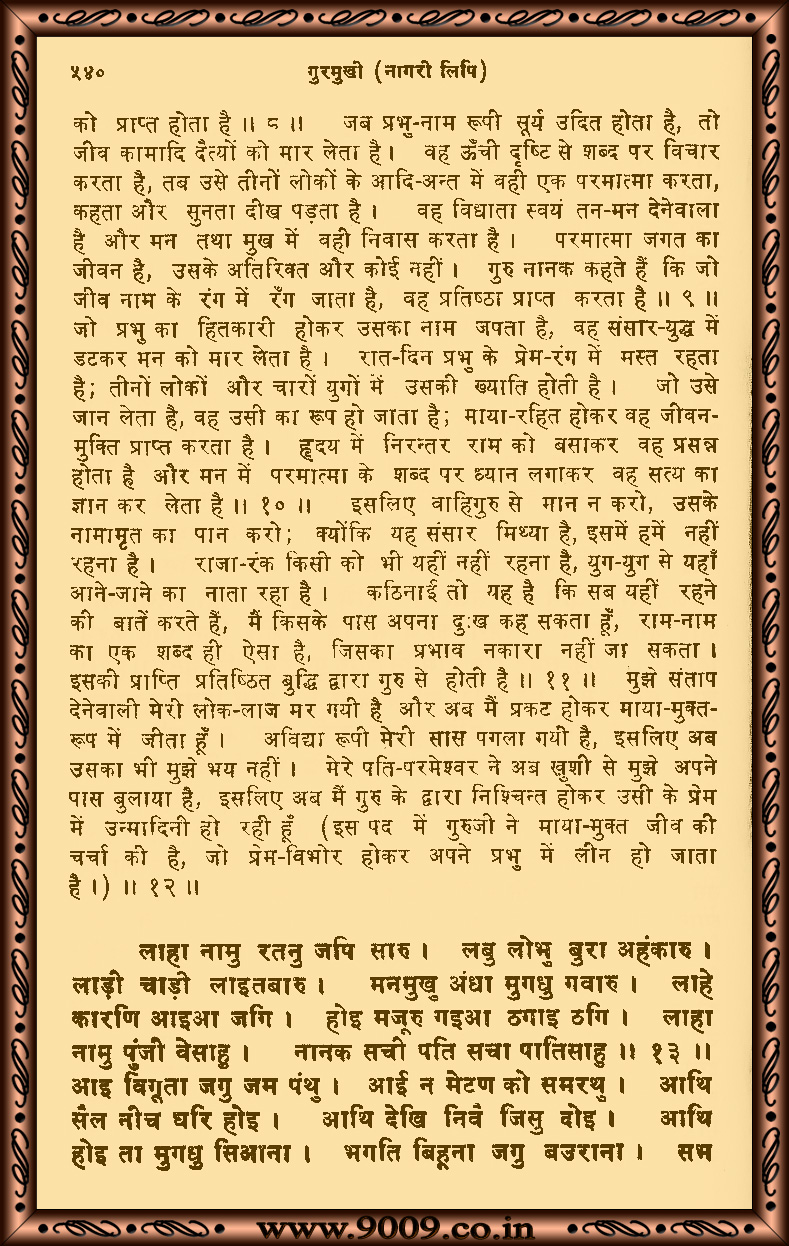 ५४०
गुरमुखी (नागरी लिपि)
को प्राप्त होता है ॥ ८ ॥ जब प्रभु-नाम रूपी सूर्य उदित होता है, तो
जीव कामादि दैत्यों को मार लेता है। वह ऊँची दृष्टि से शब्द पर विचार
करता है, तब उसे तीनों लोकों के आदि-अन्त में वही एक परमात्मा करता,
कहता और सुनता दीख पड़ता है। वह विधाता स्वयं तन-मन देनेवाला
है और मन तथा मुख में वही निवास करता है। परमात्मा जगत का
जीवन है, उसके अतिरिक्त और कोई नहीं। गुरु नानक कहते हैं कि जो
जीव नाम के रंग में रँग जाता है, वह प्रतिष्ठा प्राप्त करता है ॥ ९ ॥
जो प्रभु का हितकारी होकर उसका नाम जपता है, वह संसार-युद्ध में
डटकर मन को मार लेता है। रात-दिन प्रभु के प्रेम-रंग में मस्त रहता
है; तीनों लोकों और चारों युगों में उसकी ख्याति होती है। जो उसे
जान लेता है, वह उसी का रूप हो जाता है; माया-रहित होकर वह जीवन-
मुक्ति प्राप्त करता है। हृदय में निरन्तर राम को बसाकर वह प्रसन्न
होता है और मन में परमात्मा के शब्द पर ध्यान लगाकर वह सत्य का
ज्ञान कर लेता है ॥ १० ॥ इसलिए वाहिगुरु से मान न करो, उसके
नामामृत का पान करो; क्योंकि यह संसार मिथ्या है, इसमें हमें नहीं
रहना है। राजा-रंक किसी को भी यहीं नहीं रहना है, युग-युग से यहाँ
आने-जाने का नाता रहा है। कठिनाई तो यह है कि सब यहीं रहने
की बातें करते हैं, मैं किसके पास अपना दुःख कह सकता हूँ, राम-नाम
का एक शब्द ही ऐसा है, जिसका प्रभाव नकारा नहीं जा सकता।
इसकी प्राप्ति प्रतिष्ठित बुद्धि द्वारा गुरु से होती है ॥ ११ ॥ मुझे संताप
देनेवाली मेरी लोक-लाज मर गयी है और अब मैं प्रकट होकर माया-मुक्त-
रूप में जीता हूँ। अविद्या रूपी मेरी सास पगला गयी है, इसलिए अब
उसका भी मुझे भय नहीं। मेरे पति-परमेश्वर ने अब खुशी से मुझे अपने
पास बुलाया है, इसलिए अब मैं गुरु के द्वारा निश्चिन्त होकर उसी के प्रेम
में उन्मादिनी हो रही हूँ (इस पद में गुरुजी ने माया-मुक्त जीव की
चर्चा की है, जो प्रेम-विभोर होकर अपने प्रभु में लीन हो जाता
है।) ॥ १२ ॥
लाहा नामु रतनु जपि सारु। लबु लोभु बुरा अहंकारु।
लाड़ी चाड़ी लाइतबारु। मनमुखु अंधा मुगधु गवारु। लाहे
कारणि आइआ जगि। होइ मजूरु गइआ ठगाइ ठगि। लाहा
नामु पुंजी वेसाहु। नानक सची पति सचा पातिसाहु ॥ १३ ॥
आइ विगूता जगु जम पंथु। आई न मेटण को समरथु। आथि
सैल नीच घरि होइ। आथि देखि निवै जिसु दोइ। आथि
होइ ता मुगधु सिआना। भगति बिहूना जगु बउराना। सभ
www.9009.co.in